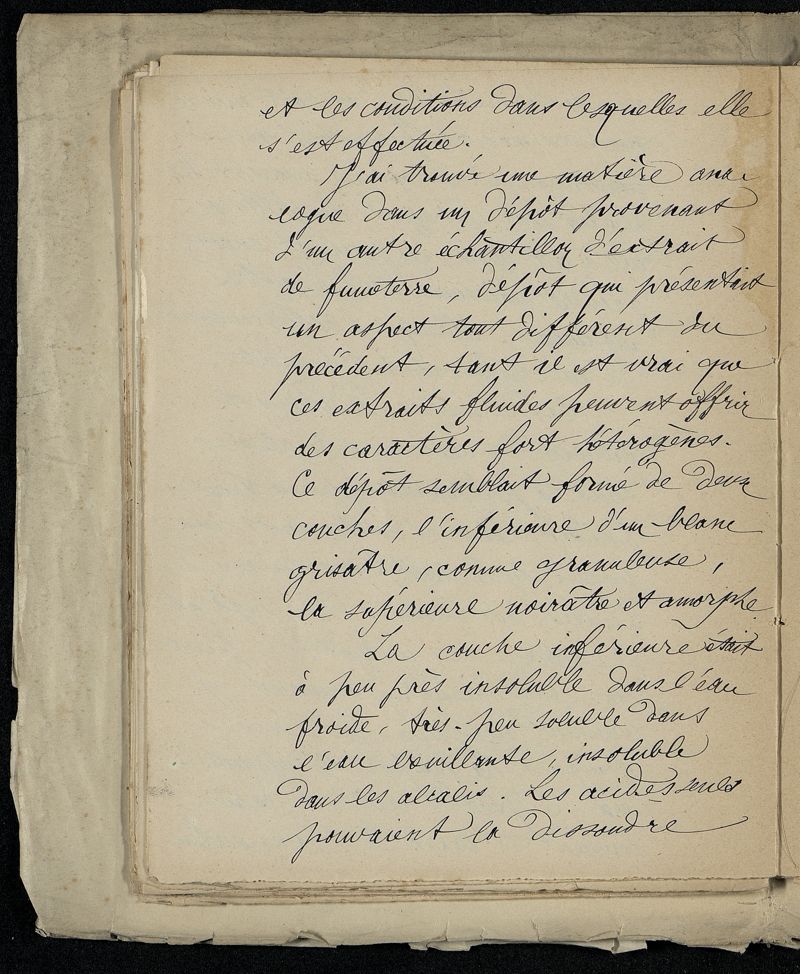 et les conditions dans lesquelles elle
s'est effectuée.
J'ai trouvé une matière ana-
logue dans un dépôt provenant
d'un autre échantillon d'extrait
de fumeterre, dépôt qui présentait
un aspect tout différent du
précédent, tant il est vrai que
ces extraits fluides peuvent offrir
des caractères fort hétérogènes.
Ce dépôt semblait formé de deux
couches, l'inférieure d'un blanc
grisâtre, comme granuleuse,
la supérieure noirâtre et amorphe
La couche inférieure était
à peu près insoluble dans l'eau
froide, très-peu soluble dans
l'eau bouillante, insoluble
dans les alcalis. Les acides seuls
pouvaient la dissoudre